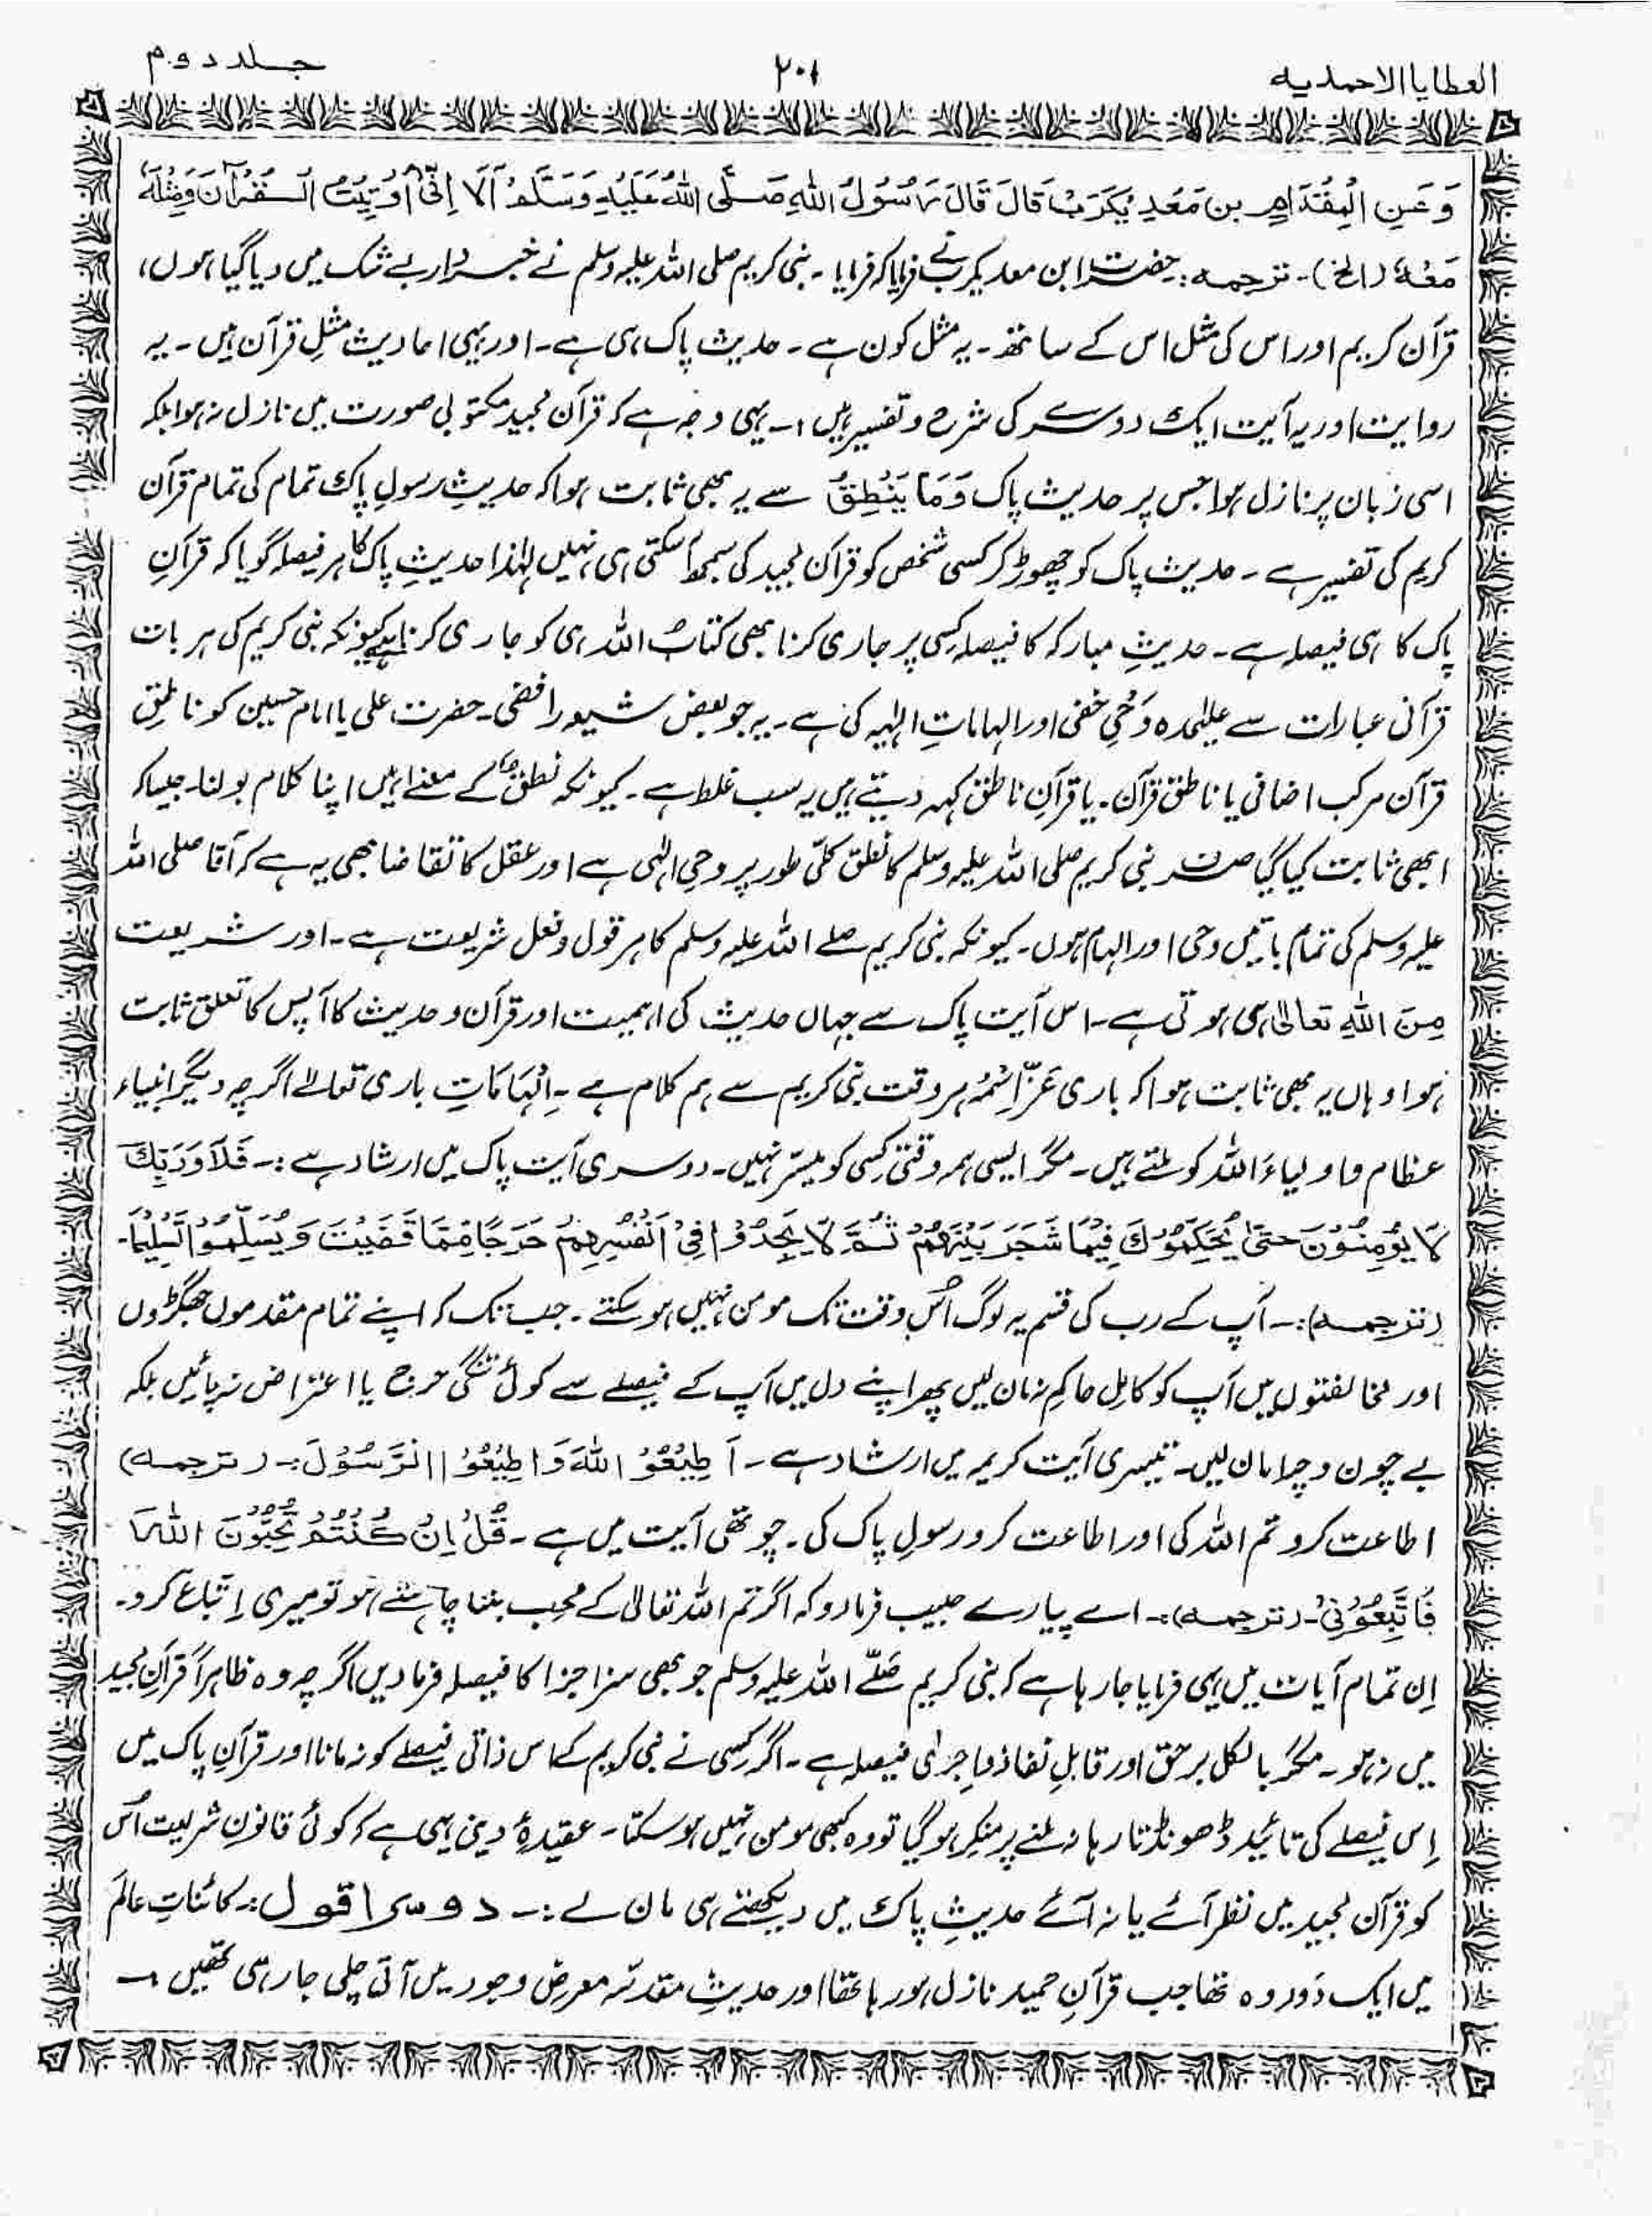 العطایا الاحمدیہ ۲۰۱ جلد دوم
وَعَنِ الْمِقْدَامِ بن مَعْدِ یْکَرَبَ قَالَ قَالَ رَسُوْلُ اللہِ صَلَّی اللہُ عَلَیْہِ وَسَلَّمْ اَلَا اِنِّیْ اُوْتِیْتُ الْقُرْاٰنَ وَمِثْلَہٗ
مَعَہٗ (الخ)۔ ترجمہ: حضرت ابن معد یکرب نے فرمایا کہ فرمایا۔ نبی کریم صلی اللہ علیہ وسلم نے خبردار بے شک میں دیا گیا ہوں،
قرآن کریم اور اس کی مثل اس کے ساتھ۔ یہ مثل کون ہے۔ حدیث پاک ہی ہے۔ اور یہی احادیث مثلِ قرآن ہیں۔ یہ
روایت اور یہ آیت ایک دوسرے کی شرح و تفسیر ہیں۔ یہی وجہ ہے کہ قرآن مجید مکتوبی صورت میں نازل نہ ہوا بلکہ
اسی زبان پر نازل ہوا جس پر حدیث پاک وَمَا یَنْطِقُ سے یہ بھی ثابت ہوا کہ حدیثِ رسولِ پاک تمام کی تمام قرآن
کریم کی تفسیر ہے۔ حدیث پاک کو چھوڑ کر کسی شخص کو قرآن مجید کی سمجھ آسکتی ہی نہیں لہٰذا حدیثِ پاک کا ہر فیصلہ گویا کہ قرآنِ
پاک کا ہی فیصلہ ہے۔ حدیثِ مبارکہ کا فیصلہ کسی پر جاری کرنا بھی کتابُ اللہ ہی کو جاری کرنا ہے کیونکہ نبی کریم کی ہر بات
قرآنی عبارات سے علیحدہ وَحْیِ خفی اور الہاماتِ الٰہیہ کی ہے۔ یہ جو بعض شیعہ رافضی۔ حضرت علی یا امام حسین کو ناطقِ
قرآن مرکب اضافی یا ناطق قرآن۔ یا قرآنِ ناطق کہہ دیتے ہیں یہ سب غلط ہے۔ کیونکہ نطق کے معنے ہیں اپنا کلام بولنا۔ جیسا کہ
ابھی ثابت کیا گیا صرف نبی کریم صلی اللہ علیہ وسلم کا نطق کلّی طور پر وحیِ الٰہی ہے اور عقل کا تقاضا بھی یہ ہے کہ آقا صلی اللہ
علیہ وسلم کی تمام باتیں وحی اور الہام ہوں۔ کیونکہ نبی کریم صلے اللہ علیہ وسلم کا ہر قول و فعل شریعت ہے۔ اور شریعت
مِنَ اللہِ تعالیٰ ہی ہوتی ہے۔ اس آیت پاک سے جہاں حدیث کی اہمیت اور قرآن و حدیث کا آپس کا تعلق ثابت
ہوا وہاں یہ بھی ثابت ہوا کہ باری عَزَّ اِسْمُہٗ ہر وقت نبی کریم سے ہم کلام ہے۔ اِلْہَامَاتِ باری تعالےٰ اگرچہ دیگر انبیاء
عظام و اولیاءَ اللہ کو ملتے ہیں۔ مگر ایسی ہمہ وقتی کِسی کو میسّر نہیں۔ دوسری آیت پاک میں ارشاد ہے:۔ فَلَاوَرَبِّکَ
لَا یُؤْمِنُوْنَ حتیٰ یُحَکِّمُوْكَ فِیْمَا شَجَرَ بَیْنَهُمْ ثُمَّ لَا یَجِدُوْا فِیْ اَنْفُسِهِمْ حَرَجًا مِّمَّا قَضَیْتَ وَ یُسَلِّمُوْا تَسْلِیْمًا۔
(ترجمہ):۔ آپ کے رب کی قسم یہ لوگ اُس وقت تک مومن نہیں ہو سکتے۔ جب تک کہ اپنے تمام مقدموں جھگڑوں
اور مخالفتوں میں آپ کو کامِل حاکم نہ مان لیں پھر اپنے دل میں آپ کے فیصلے سے کوئی تنگی حرج یا اعتراض نہ پائیں بلکہ
بے چون و چرا مان لیں۔ تیسری آیت کریمہ میں ارشاد ہے۔ اَطِیْعُوْا اللہَ وَ اَطِیْعُوْا الرَّسُوْلَ:۔ (ترجمہ)
اطاعت کرو تم اللہ کی اور اطاعت کرو رسولِ پاک کی۔ چوتھی آیت میں ہے۔ قُلْ اِنْ کُنْتُمْ تُحِبُّوْنَ اللہَ
فَاتَّبِعُوْنِیْ۔ (ترجمہ):۔ اے پیارے حبیب فرما دو کہ اگر تم اللہ تعالیٰ کے محب بننا چاہتے ہو تو میری اِتباع کرو۔
اِن تمام آیات میں یہی فرمایا جا رہا ہے کہ نبی کریم صَلّے اللہ علیہ وسلم جو بھی سزا جزا کا فیصلہ فرما دیں اگرچہ وہ ظاہراً قرآنِ مجید
میں نہ ہو۔ مگر بالکل برحق اور قابلِ نفاذ و اجرائی فیصلہ ہے۔ اگر کسی نے نبی کریم کے اس ذاتی فیصلے کو نہ مانا اور قرآنِ پاک میں
اِس فیصلے کی تائید ڈھونڈتا رہا نہ ملنے پر منکر ہو گیا تو وہ کبھی مومن نہیں ہو سکتا۔ عقیدۂ دینی یہی ہے کہ کوئی قانونِ شریعت اُس
کو قرآن مجید میں نظر آئے یا نہ آئے حدیثِ پاک میں دیکھتے ہی مان لے:۔ دوسرا قول:۔ کائناتِ عالَم
میں ایک دَور وہ تھا جب قرآنِ حمید نازل ہو رہا تھا اور حدیثِ مقدسہ معرضِ وجود میں آتی چلی جا رہی تھیں۔